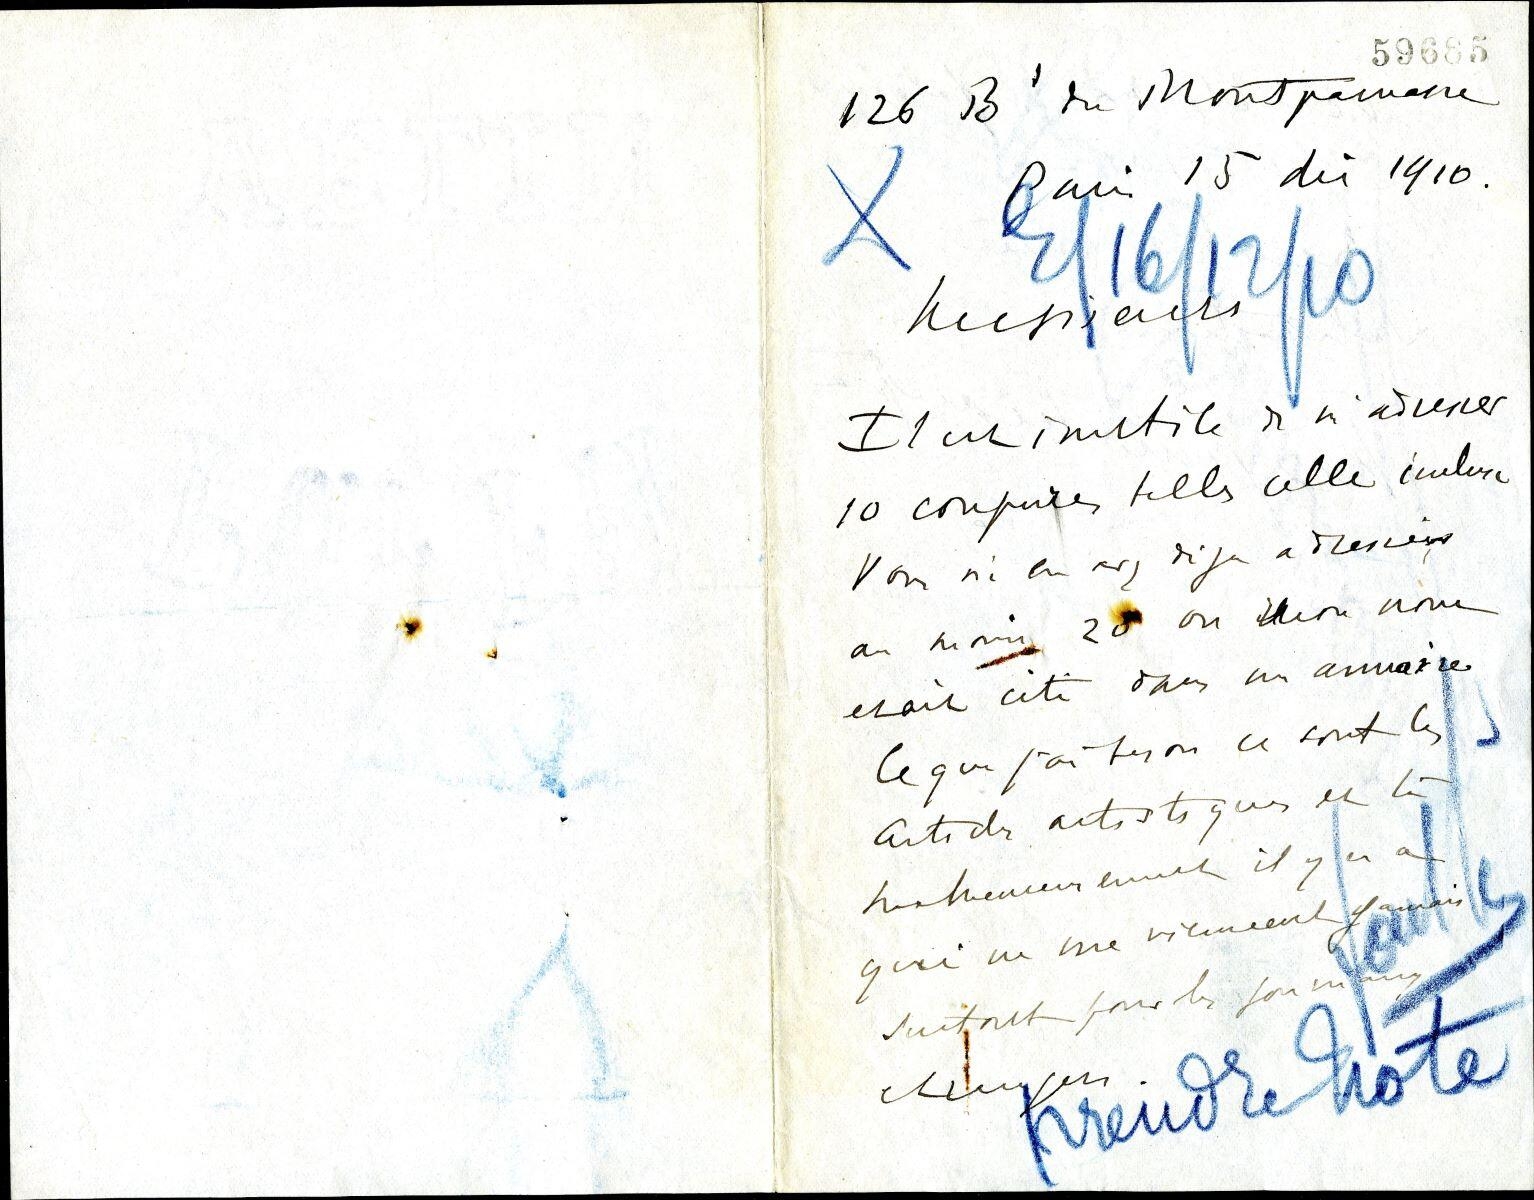 59685
126 Bd du Montparnasse
Paris 15 dec 1910.
X
E/16/12/10
Messieurs
Il est inutile de m'adresser
10 coupures telles celle incluse
Vous m'en avez deja adressées
au moins 20 ou mon nom
etait cité dans un annuaire
Ce que j'ai besoin ce sont les
Articles artistiques et
malheureusement il y en a
qui ne me viennent jamais
surtout pour les journaux
etrangers.
prendre note